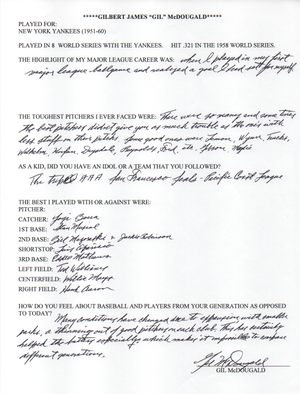 *****GILBERT JAMES "GIL" McDOUGALD*****
PLAYED FOR:
NEW YORK YANKEES (1951-60)
PLAYED IN 8 WORLD SERIES WITH THE YANKEES. HIT .321 IN THE 1958 WORLD SERIES.
THE HIGHLIGHT OF MY MAJOR LEAGUE CAREER WAS: when I played in my first
major league ballgame and realized a goal I had set for myself
THE TOUGHEST PITCHERS I EVER FACED WERE: There were so many and some times
the best pitchers didn't give you as much trouble as the ones with
less stuff on their pitches. Some good men were Lemon, Wynn, Trucks,
Wilhelm, Drysdale, Reynolds, etc.
AS A KID, DID YOU HAVE AN IDOL OR A TEAM THAT YOU FOLLOWED?
The AAA San Francisco Seals - Pacific Coast League
THE BEST I PLAYED WITH OR AGAINST WERE:
PITCHER:
CATCHER: Yogi Berra
1ST BASE: Stan Musial
2ND BASE: Bill Mazeroski & Jackie Robinson
SHORTSTOP: Luis Aparicio
3RD BASE: Eddie Mathews
LEFT FIELD: Ted Williams
CENTERFIELD: Willie Mays
RIGHT FIELD: Hank Aaron
HOW DO YOU FEEL ABOUT BASEBALL AND PLAYERS FROM YOUR GENERATION AS OPPOSED
TO TODAY?
Many conditions have changed due to expansion with smaller
parks, a thinning out of good pitchers on each club. This has certainly
helped the batters especially which makes it impossible to compare
different generations.
Gil McDougald
GIL McDOUGALD